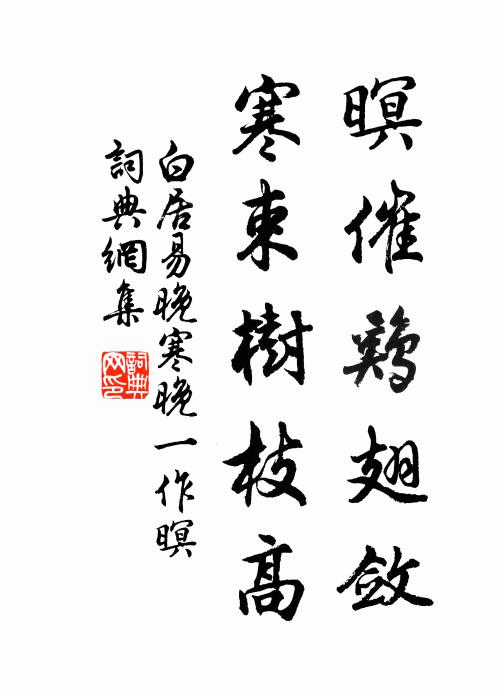 暝催鷄翅斂
寒束樹枝高
白居易晚寒晚一作暝
詞典網集
詞典網印